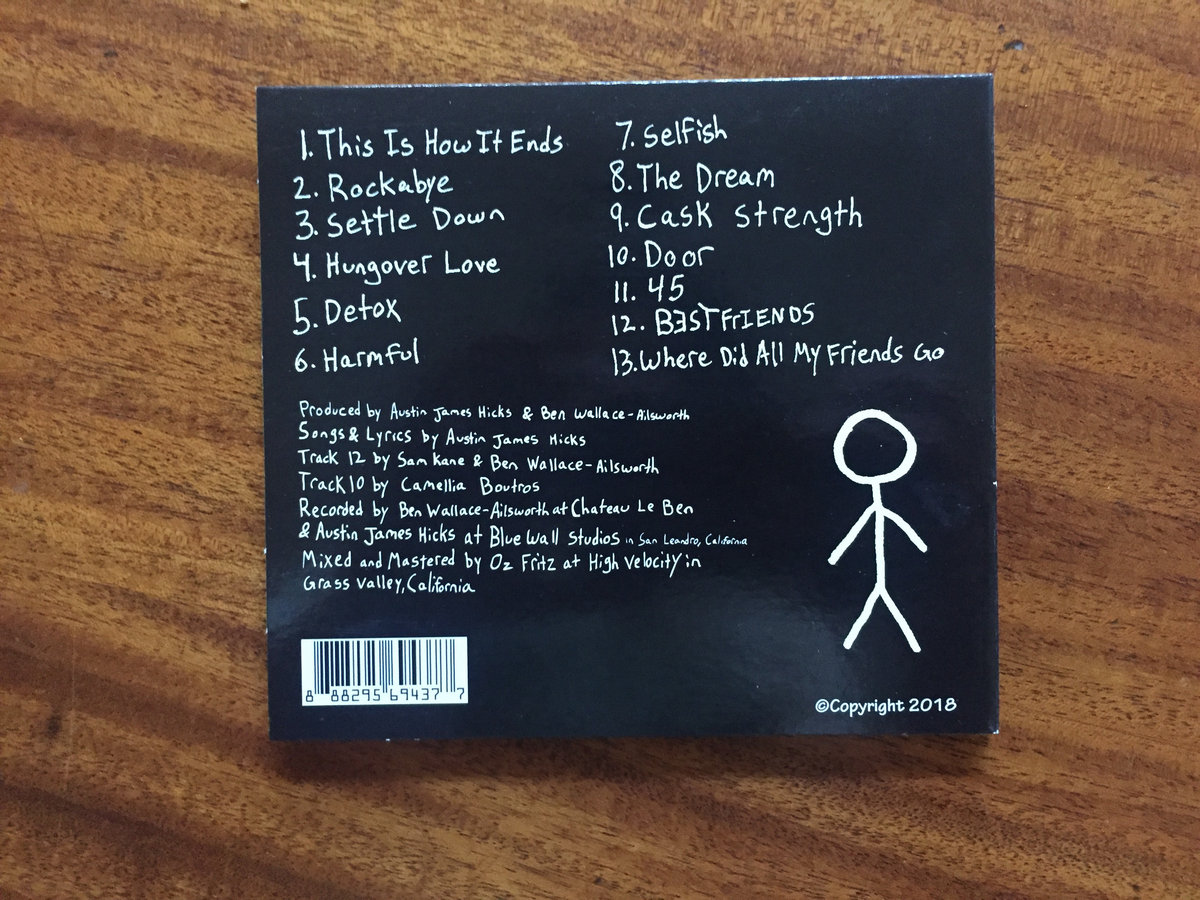 1. This Is How It Ends
2. Rockabye
3. Settle Down
4. Hungover Love
5. Detox
6. Harmful
7. Selfish
8. The Dream
9. Cask Strength
10. Door
11. 45
12. BESTFrIENDS
13. Where Did All My Friends Go
Produced by Austin James Hicks & Ben Wallace-Ailsworth
Songs & Lyrics by Austin James Hicks
Track 12 by Sam Kane & Ben Wallace-Ailsworth
Track 10 by Camellia Boutros
Recorded by Ben Wallace-Ailsworth at Chateau Le Ben
& Austin James Hicks at Blue Wall Studios in San Leandro, California
Mixed and Mastered by Oz Fritz at High Velocity in
Grass Valley, California
8 88295 69437 7
©Copyright 2018